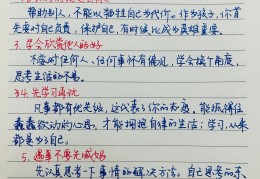 帮助别人,不能以牺牲自己为代价。作为孩子,你首
先要对自己负责,保护自己,有时候比成为英雄重要。
3. 学会欣赏他人的好
不要对任何人、任何事怀有偏见,学会换个角度,
思考生活的不易。
34. 先学习再玩
凡事都有优先级,这代表了你的态度,能抵得住
蠢蠢欲动的心思,才能拥抱自律的生活;学习,从来
都是为了自己。
5. 遇事不要先喊妈
先认真思考一下事情的解决方法。自己思考的不